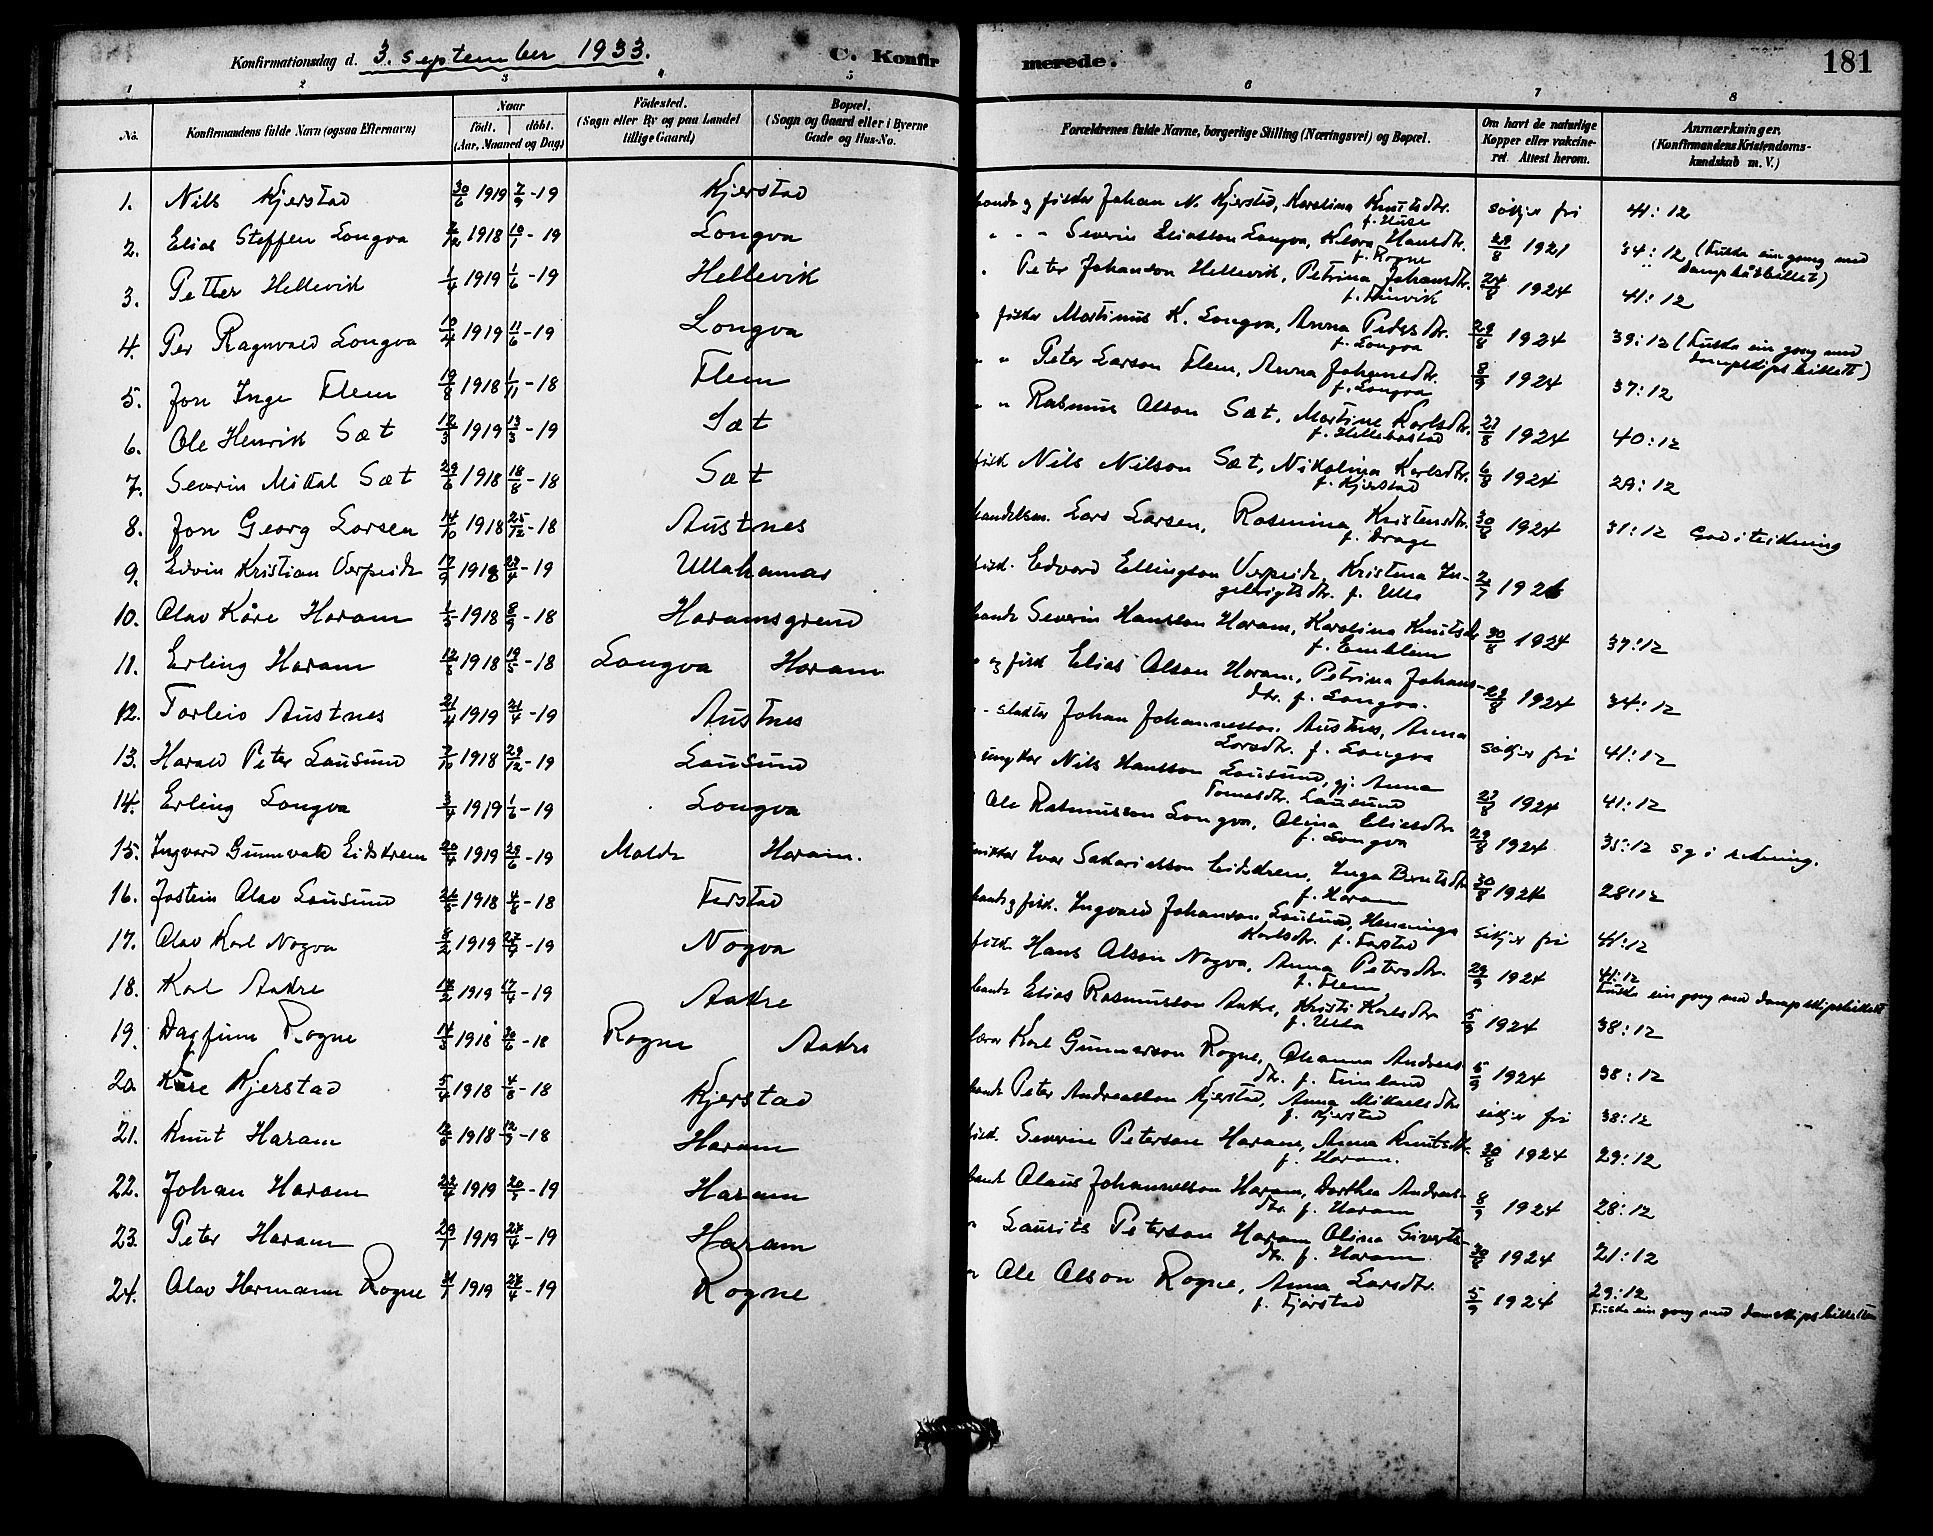 Konfirmationsdag d. 3. september 1933. C. Konfirmerede. 181
1 2 3 4 5 6 7 8
No. Konfirmandens fulde Navn (ogsaa Efternavn) Naar født. døbt. (Aar, Maaned og Dag) Fødested. (Sogn eller By og paa Landet tillige Gaard) Bopæl. (Sogn og Gaard eller i Byerne Gade og Hus-No. Forældrenes fulde Navne, borgerlige Stilling (Næringsvei) og Bopæl. Om havt de naturlige Kopper eller vakcineret. Attest herom. Anmærkninger. (Konfirmandens Kristendomskundskab m. V.)
1. Nils Kjerstad 30/6 1919 7/9-19 Kjerstad bonde og fisker Johan N. Kjerstad, Karolina Knutsdtr. f. Huse søkjer fri 41:12
2. Elias Steffen Longva 2/12 1918 10/1-19 Longva " - - Severin Eliasson Longva, Klara Hansdtr. f. Rogne 29/8 1921 34:12 (Fuska ein gong med dampbåtbillet)
3. Petter Hellevik 1/4 1919 1/6-19 Hellevik " Peter Johanson Hellevik, Petrina Johansdtr. 24/8 1924 41:12
4. Per Ragnvald Longva 10/4 1919 11/6-19 Longva " fisker Martinus K. Longva, Anna Pedersdtr. f. Longva 29/8 1924 39:12 (Fuska ein gong med dampskipsbillett)
5. Jon Inge Flem 19/8 1918 1/11-18 Flem " " Peter Larson Flem, Anna Johansdtr. f. Longva 8/9 1924 37:12
6. Ole Henrik Sæt 12/3 1919 13/3-19 Sæt " " Rasmus Olson Sæt, Martine Karlsdtr. f. Hellebostad 27/8 1924 40:12
7. Severin Mikal Sæt 29/6 1918 18/8-18 Sæt fisk Nils Nilson Sæt, Nikolina Karlsdtr. f. Kjerstad 6/8 1924 29:12
8. Jon Georg Larsen 14/10 1918 25/12-18 Austnes handelsm. Lars Larsen, Rasmina Kristensdtr. f. Drage 30/8 1924 31:12 God i teikning
9. Edvin Kristian 17/9 1918 27/4-19 Ullahamnar fisk. Edvard Ellingson Kristina Ingebrigtsdtr. f. Ulla 2/7 1926
10. Olav Kåre Haram 1/5 1918 8/9-18 Haramsgrend bonde Severin Hansson Haram, Karolina Knutsdtr f. Emblem 30/8 1924 37:12
11. Erling Haram 12/3 1918 19/5-18 Longva Haram " og fisk Elias Olson Haram, Petrina Johansdtr. f. Longva. 29/8 1924 34:12
12. Torleiv Austnes 21/4 1919 21/4-19 Austnes " - Johan Johannesson Austnes, Anna Larsdtr. f. Longva søkjer fri 41:12
13. Harald Peter Lausund 7/10 1918 29/12-19 Lausund ungkar Nils Hansson Lausund, gj. Anna Tomasdtr. Lausund 27/8 1924 41:12
14. Erling Longva 3/4 1919 1/6-19 Longva " Ole Rasmusson Longva, Olina Eliasdtr f. Longva 29/8 1924 35:12 Sg i rekning.
15. Ingvard Gunnvald Eidskrem 20/4 1919 29/6-19 Molde Haram. snikkar Ivar Sakariasson Eidskrem, Inga Berntsdtr f. Haram 30/8 1924 28:12
16. Jostein Olav Lausund 26/5 1918 4/8-18 Farstad bonde og fisk. Ingvald Johanson Lausund, Henninga Karlsdtr. f. Farstad søkjer fri 41:12
17. Olav Karl Nogva 8/2 1919 27/4-19 Nogva fisk. Hans Olson Nogva, Anna Petersdtr. f. Flem 29/9 1924 41:12 Fuska ein gong med dampskipsbillett
18. Karl Aakre 17/2 1919 17/4-19 Aakre bonde Elias Rasmusson Aakre, Kristi Karlsdtr f. Ulla 5/9 1924 38:12
19. Dagfinn Rogne 14/5 1918 30/6-18 Rogne Aakre lærar Karl Gunnarson Rogne, Ohanna Andreasdtr. f. Fimland 5/9 1924 38:12
20. Kåre Kjerstad 5/4 1918 4/8-18 Kjerstad bonde Peter Andreasson Kjerstad, Anna Mikaelsdtr f. Kjerstad søkjer fri 38:12
21. Knut Haram 1918 -18 Haram fisk. Severin Peterson Haram, Anna Knutsdtr. f. Haram. 30/8 1924 29:12
22. Johan Haram 22/4 1919 20/7-19 Haram bonde Olaus Johannesson Haram, Dorthea Andreasdtr. f. Haram 8/9 1924 28:12
23. Peter Haram 29/1 1919 27/4-19 Haram " Laurits Peterson Haram Olina Sivertsdtr. f. Haram 30/8 1924 21:12
24. Olav Hermann Rogne 31/1 1919 27/4-19 Rogne " Ole Olson Rogne, Anna Larsdtr. f. Fjørstad 5/9 1924 29:12 Fuska ein gong med damskipsbilletten